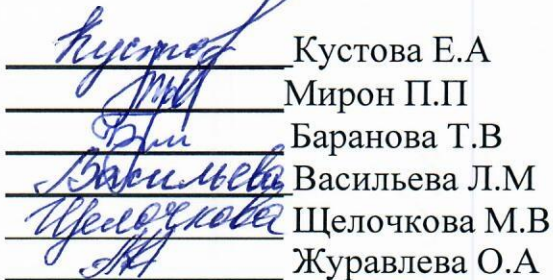 Кустов Кустова Е.А
Мирон П.П
Баранова Т.В
Васильева Васильева Л.М
Щелочкова Щелочкова М.В
Журавлева О.А